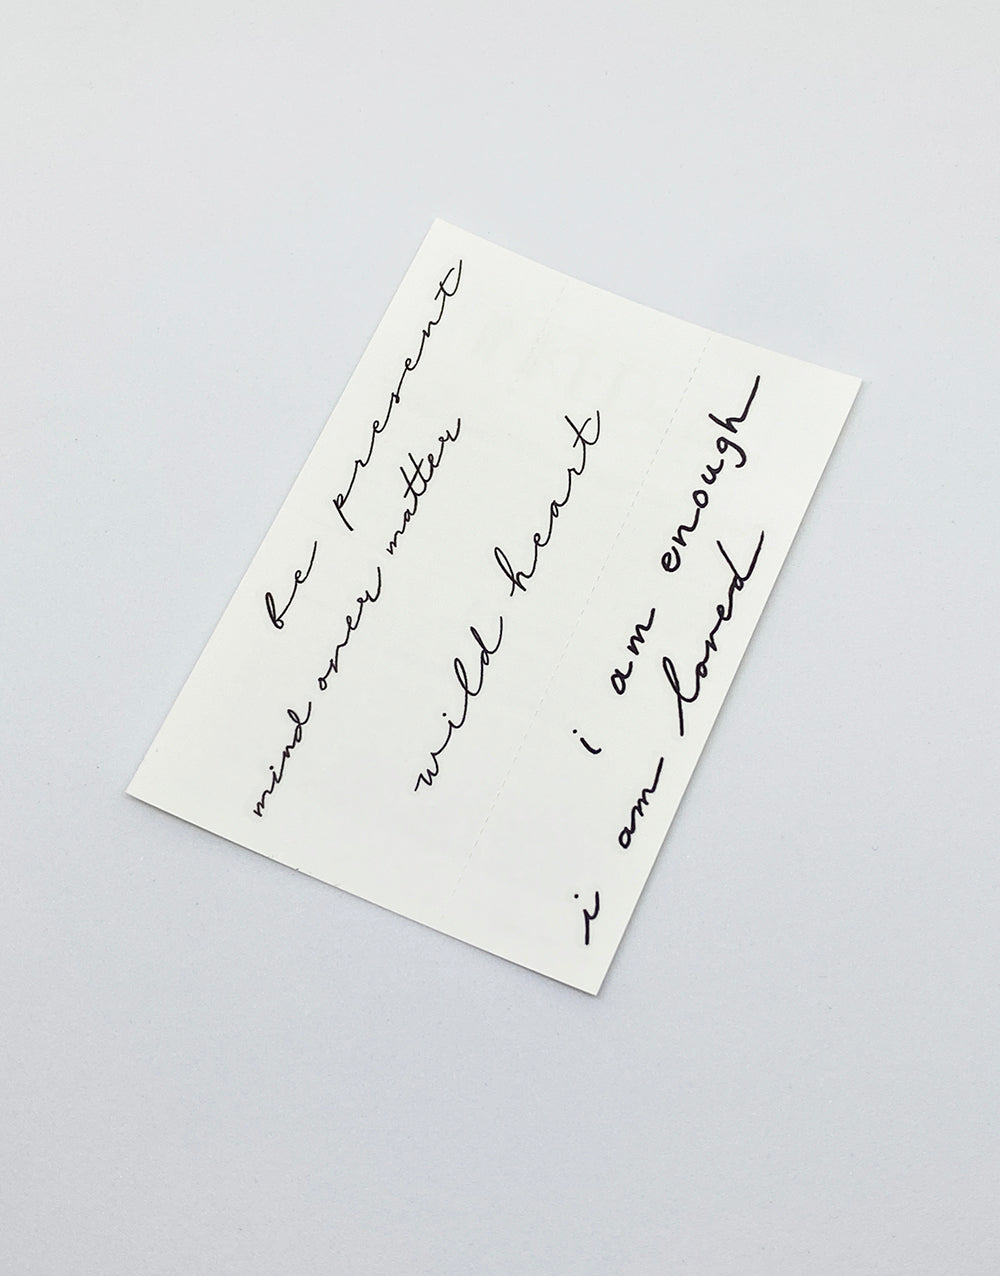 be present
mind over matter
wild heart
i am enough
i am loved